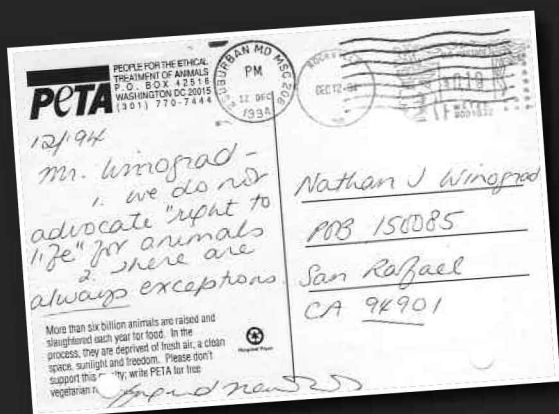 PETA
PEOPLE FOR THE ETHICAL
TREATMENT OF ANIMALS
P.O. BOX 42516
WASHINGTON DC 20015
(301) 770-7444
SUBURBAN MD MSC 208
PM
12 DEC
1994
ROCKVILLE
DEC 12 '94
12/94
Mr. Winograd -
1. we do not
advocate "right to
life" for animals
2. there are
always exceptions.
Nathan J Winograd
POB 150085
San Rafael
CA 94901
More than six billion animals are raised and
slaughtered each year for food. In the
process, they are deprived of fresh air, a clean
space, sunlight and freedom. Please don't
support this; write PETA for free
vegetarian
Recycled Paper